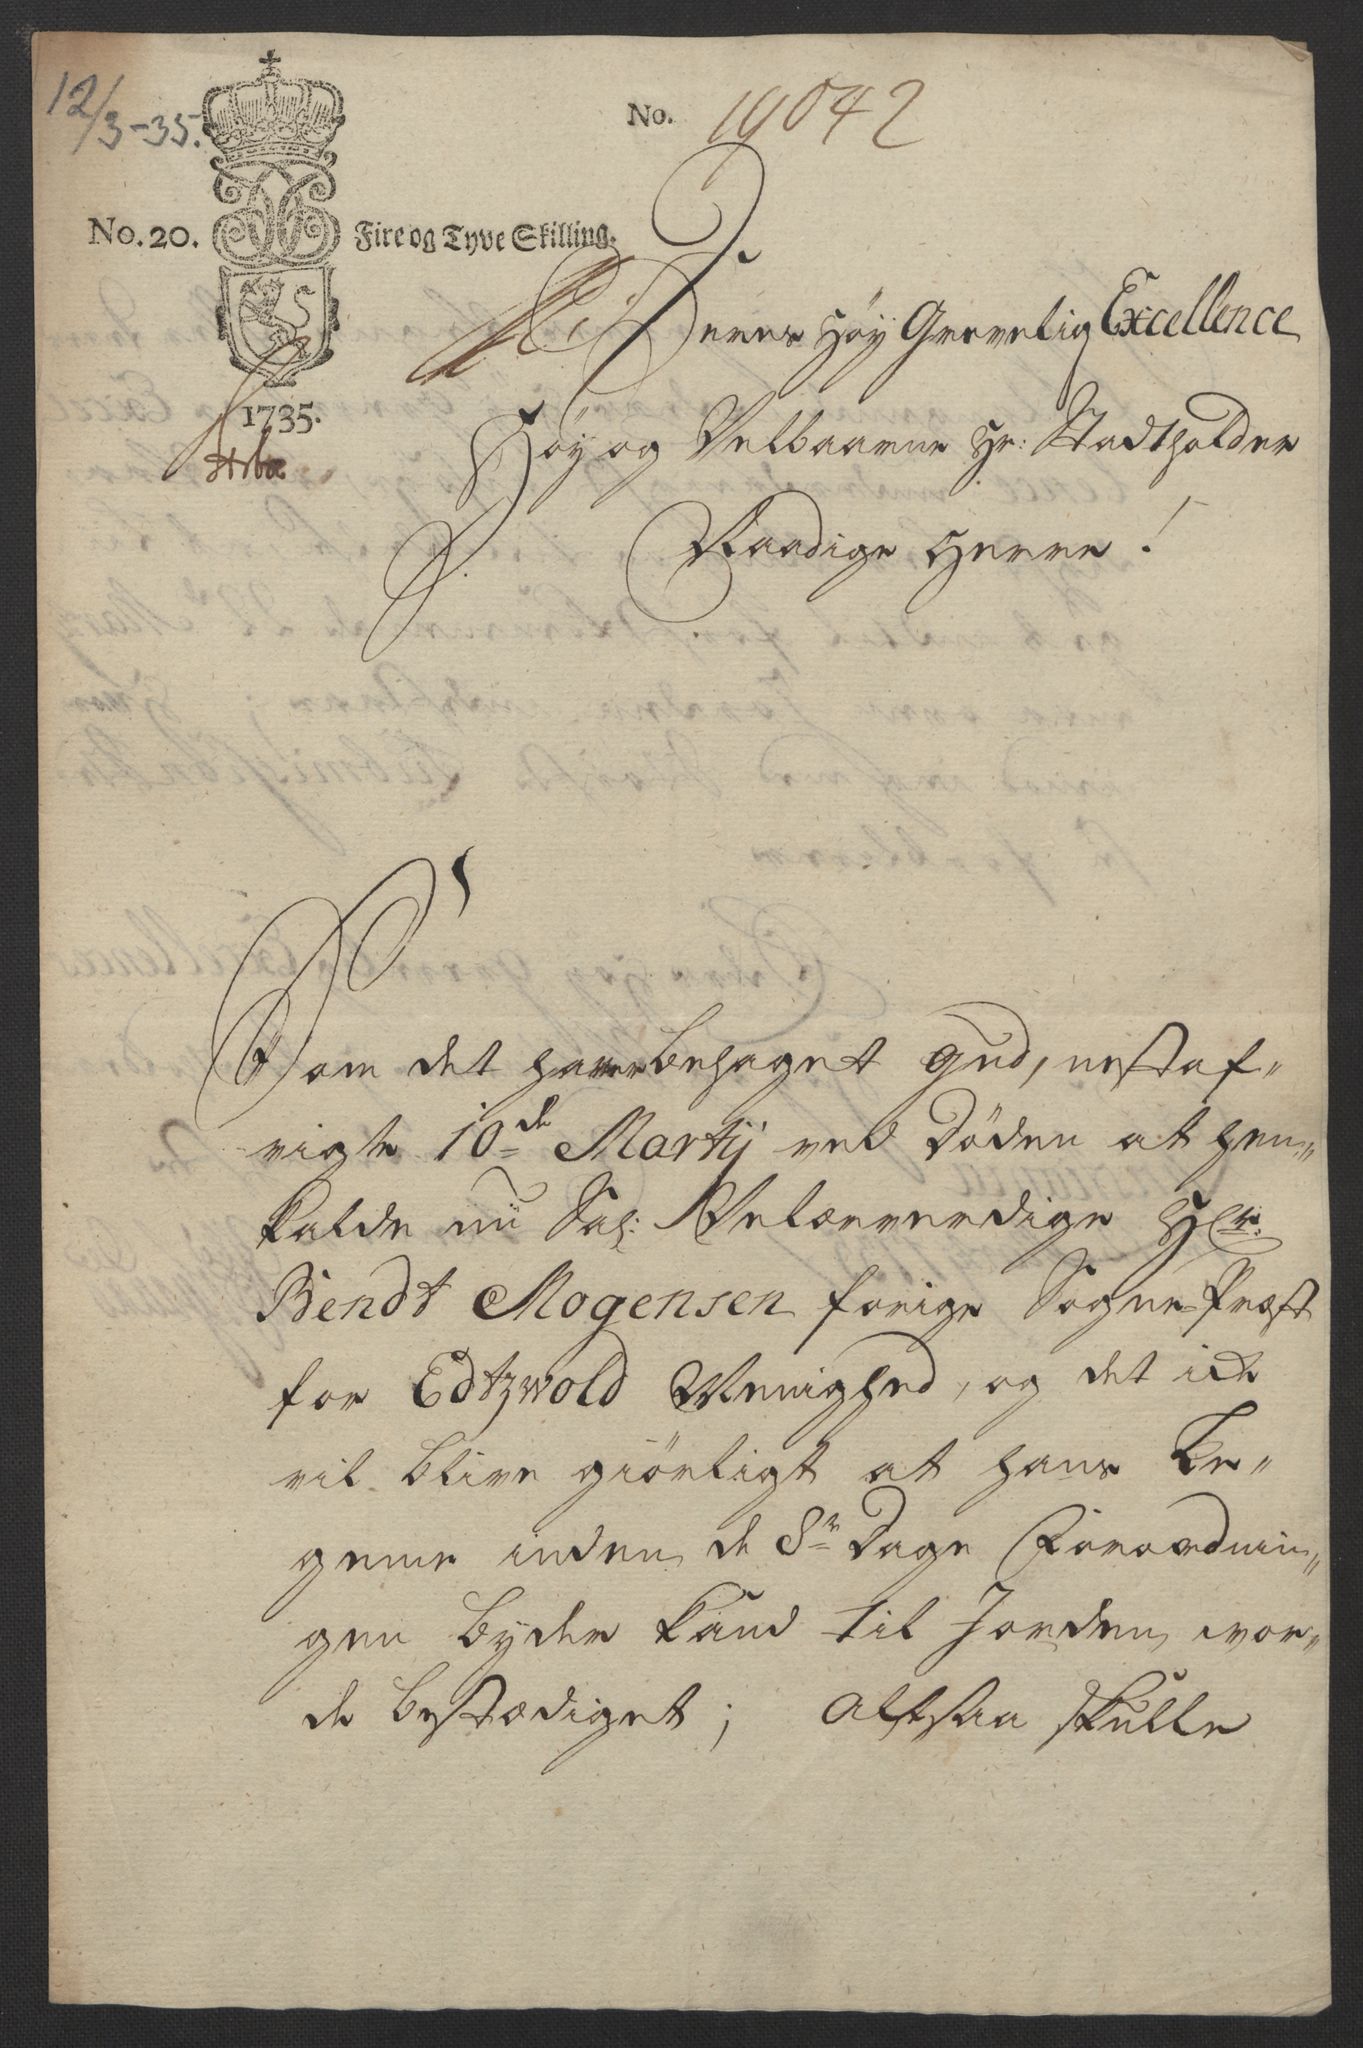 12/3-35.
No. 19042
No. 20. Fire og Tyve Skilling.
1735.
Deres Høy Grevelig Excellence
Høy og Velbaarne Hr: Stadtholder
Naadige Herre!
Som det haver behaget Gud, nestaf„
vigte 10de Martij ved Døden at hen„
kalde nu Sal: Velærverdige Hr:
Bendt Mogensen forige Sogne Præst
for Edtzwold Menighed, og det icke
vil blive giørligt at hans Le„
geme inden de 8te Dage Forordnin„
gen byder kand til Jorden wor„
de bestædiget; Altsaa skulle